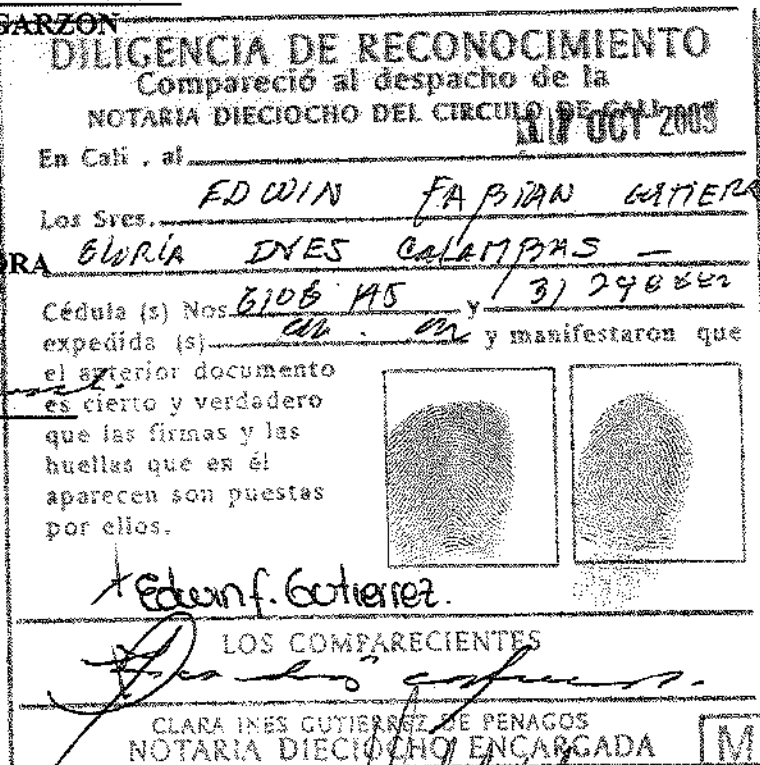 GARZON
DILIGENCIA DE RECONOCIMIENTO
Compareció al despacho de la
NOTARIA DIECIOCHO DEL CIRCULO DE CALI
OCT 2005
En Cali , al
EDWIN FABIAN GUTIERR
Los Sres.
RA GLORIA INES CALAMBAS —
Cédula (s) Nos. y
expedida (s) y manifestaron que
el anterior documento
es cierto y verdadero
que las firmas y las
huellas que en él
aparecen son puestas
por ellos.
Edwin f. Gutierrez.
LOS COMPARECIENTES
CLARA INES GUTIERREZ DE PENAGOS
NOTARIA DIECIOCHO ENCARGADA
M